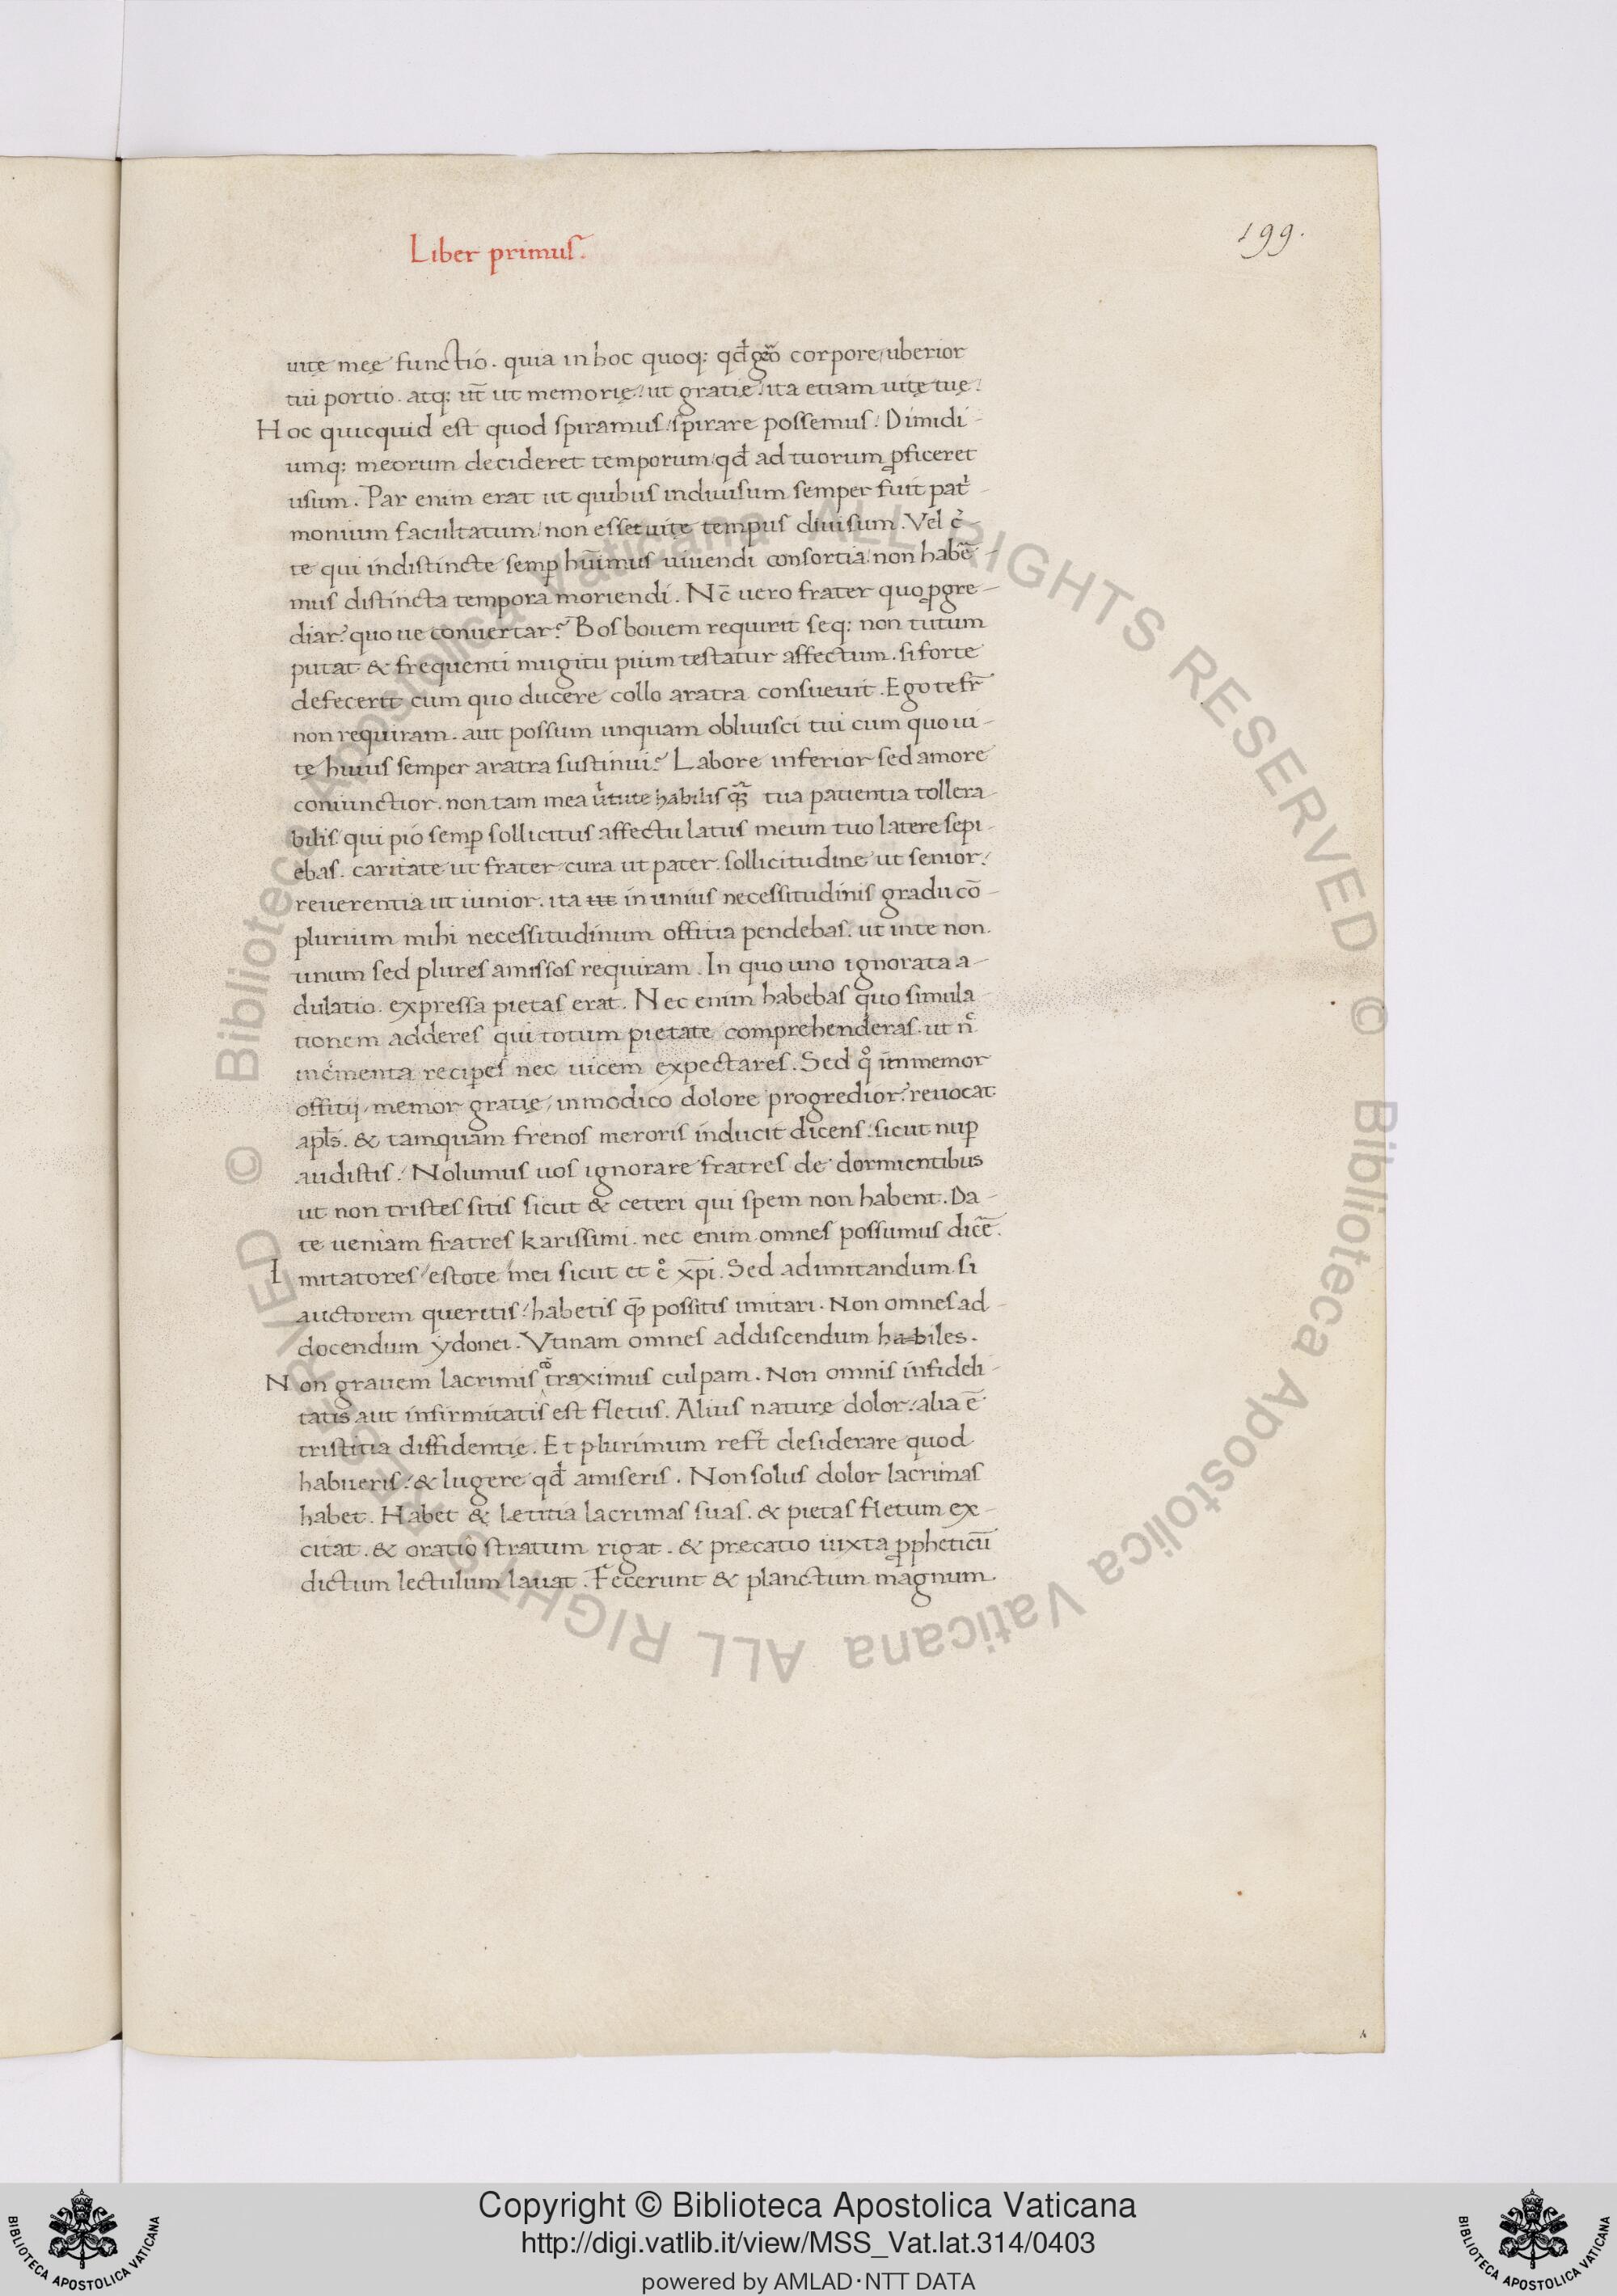 Liber primus.
199.
uitę meę functio. quia in hoc quoq: qd̄ gero corpore/ uberior
tui portio. atq: ut̄ ut memorię/ ut gratię/ ita etiam uitę tuę.
Hoc quicquid est quod spiramus/ spirare possemus/ Dimidi-
umq: meorum decideret temporum/ qd̄ ad tuorum ꝓficeret
usum. Par enim erat ut quibus indiuisum semper fuit pat̉-
monium facultatum/ non esset uitę tempus diuisum. Vel c̉-
te qui indistincte semꝑ hūimus uiuendi consortia/ non habē-
mus distincta tempora moriendi. Nc̄ uero frater quo ꝓgre-
diar? quo ue conuertar? Bos bouem requirit seq: non tutum
putat & frequenti mugitu pium testatur affectum. si forte
defecerit cum quo ducere collo aratra consueuit. Ego te fr̄
non requiram. aut possum unquam obliuisci tui cum quo ui-
tę huius semper aratra sustinui? Labore inferior sed amore
coniunctior. non tam mea u̓tute habilis tua patientia tollera-
bilis qui pio semꝑ sollicitus affectu latus meum tuo latere sepi-
ebas. caritate ut frater cura ut pater. sollicitudine ut senior/
reuerentia ut iunior. ita ut in unius necessitudinis gradu cō-
plurium mihi necessitudinum offitia pendebas. ut in te non
unum sed plures amissos requiram. In quo uno ignorata a-
dulatio. expressa pietas erat. Nec enim habebas quo simula-
tionem adderes qui totum pietate comprehenderas. ut n̊
inc̓menta recip̱es nec uicem expectares. Sed q̊ immemor
offitij/ memor gratię/ inmodico dolore progredior? reuocat
apl̄s. & tamquam frenos meroris inducit dicens/ sicut nuꝑ
audistis/ Nolumus uos ignorare fratres de dormientibus
ut non tristes sitis sicut & ceteri qui spem non habent. Da-
te ueniam fratres karissimi. nec enim omnes possumus dicē.
Imitatores/ estote mei sicut et e̊ xp̄i. Sed ad imitandum si
auctorem queritis/ habetis q̄ possitis imitari. Non omnes ad
docendum ydonei. Vtinam omnes ad discendum habiles.
Non grauem lacrimis ꝯtraximus culpam. Non omnis infideli-
tatis aut infirmitatis est fletus. Alius naturę dolor/ alia ē
tristitia diffidentię. Et plurimum ref̄t desiderare quod
habueris/ & lugere qd̄ amiseris. Non solus dolor lacrimas
habet. Habet & letitia lacrimas suas. & pietas fletum ex-
citat. & oratio stratum rigat. & precatio iuxta ꝓpheticū
dictum lectulum lauat. Fecerunt & planctum magnum.
© Biblioteca Apostolica Vaticana ALL RIGHTS RESERVED © Biblioteca Apostolica Vaticana ALL RIGHTS RESERVED
Copyright © Biblioteca Apostolica Vaticana
http://digi.vatlib.it/view/MSS_Vat.lat.314/0403
powered by AMLAD·NTT DATA
BIBLIOTECA APOSTOLICA VATICANA
BIBLIOTECA APOSTOLICA VATICANA